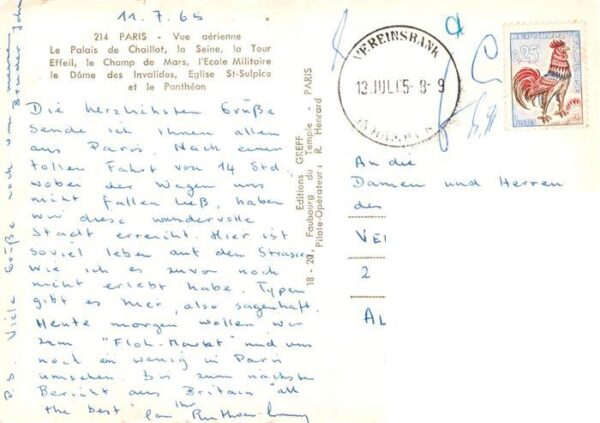 11.7.65
214 PARIS - Vue aérienne
Le Palais de Chaillot, la Seine, la Tour
Effeil, le Champ de Mars, l'Ecole Militaire
le Dôme des Invalides, Eglise St-Sulpice
et le Panthéon
Die herzlichsten Grüße
sende ich ihnen allen
aus Paris. Nach einer
tollen Fahrt von 14 Std.,
wobei der Wagen uns
nicht fallen ließ, haben
wir diese wundervolle
Stadt erreicht. Hier ist
soviel leben auf den Strassen
wie ich es zuvor noch
nicht erlebt habe. Typen
gibt es hier, also sagenhaft.
Heute morgen wollen wir
zum "Floh-Market" und uns
noch ein wenig in Paris
umsehen. Bis zum nächsten
Bericht aus Britain "all
the best" ihr
P.S. Viele Grüße noch von meinem
Bruder John
Editions GREFF
18 - 20, Faubourg du Temple - PARIS
Pilote-Opérateur : R. Henrard
VEREINSBANK
13.JUL.65-8-9
0,25
An die
Damen und Herren
der
VEI
2
AL